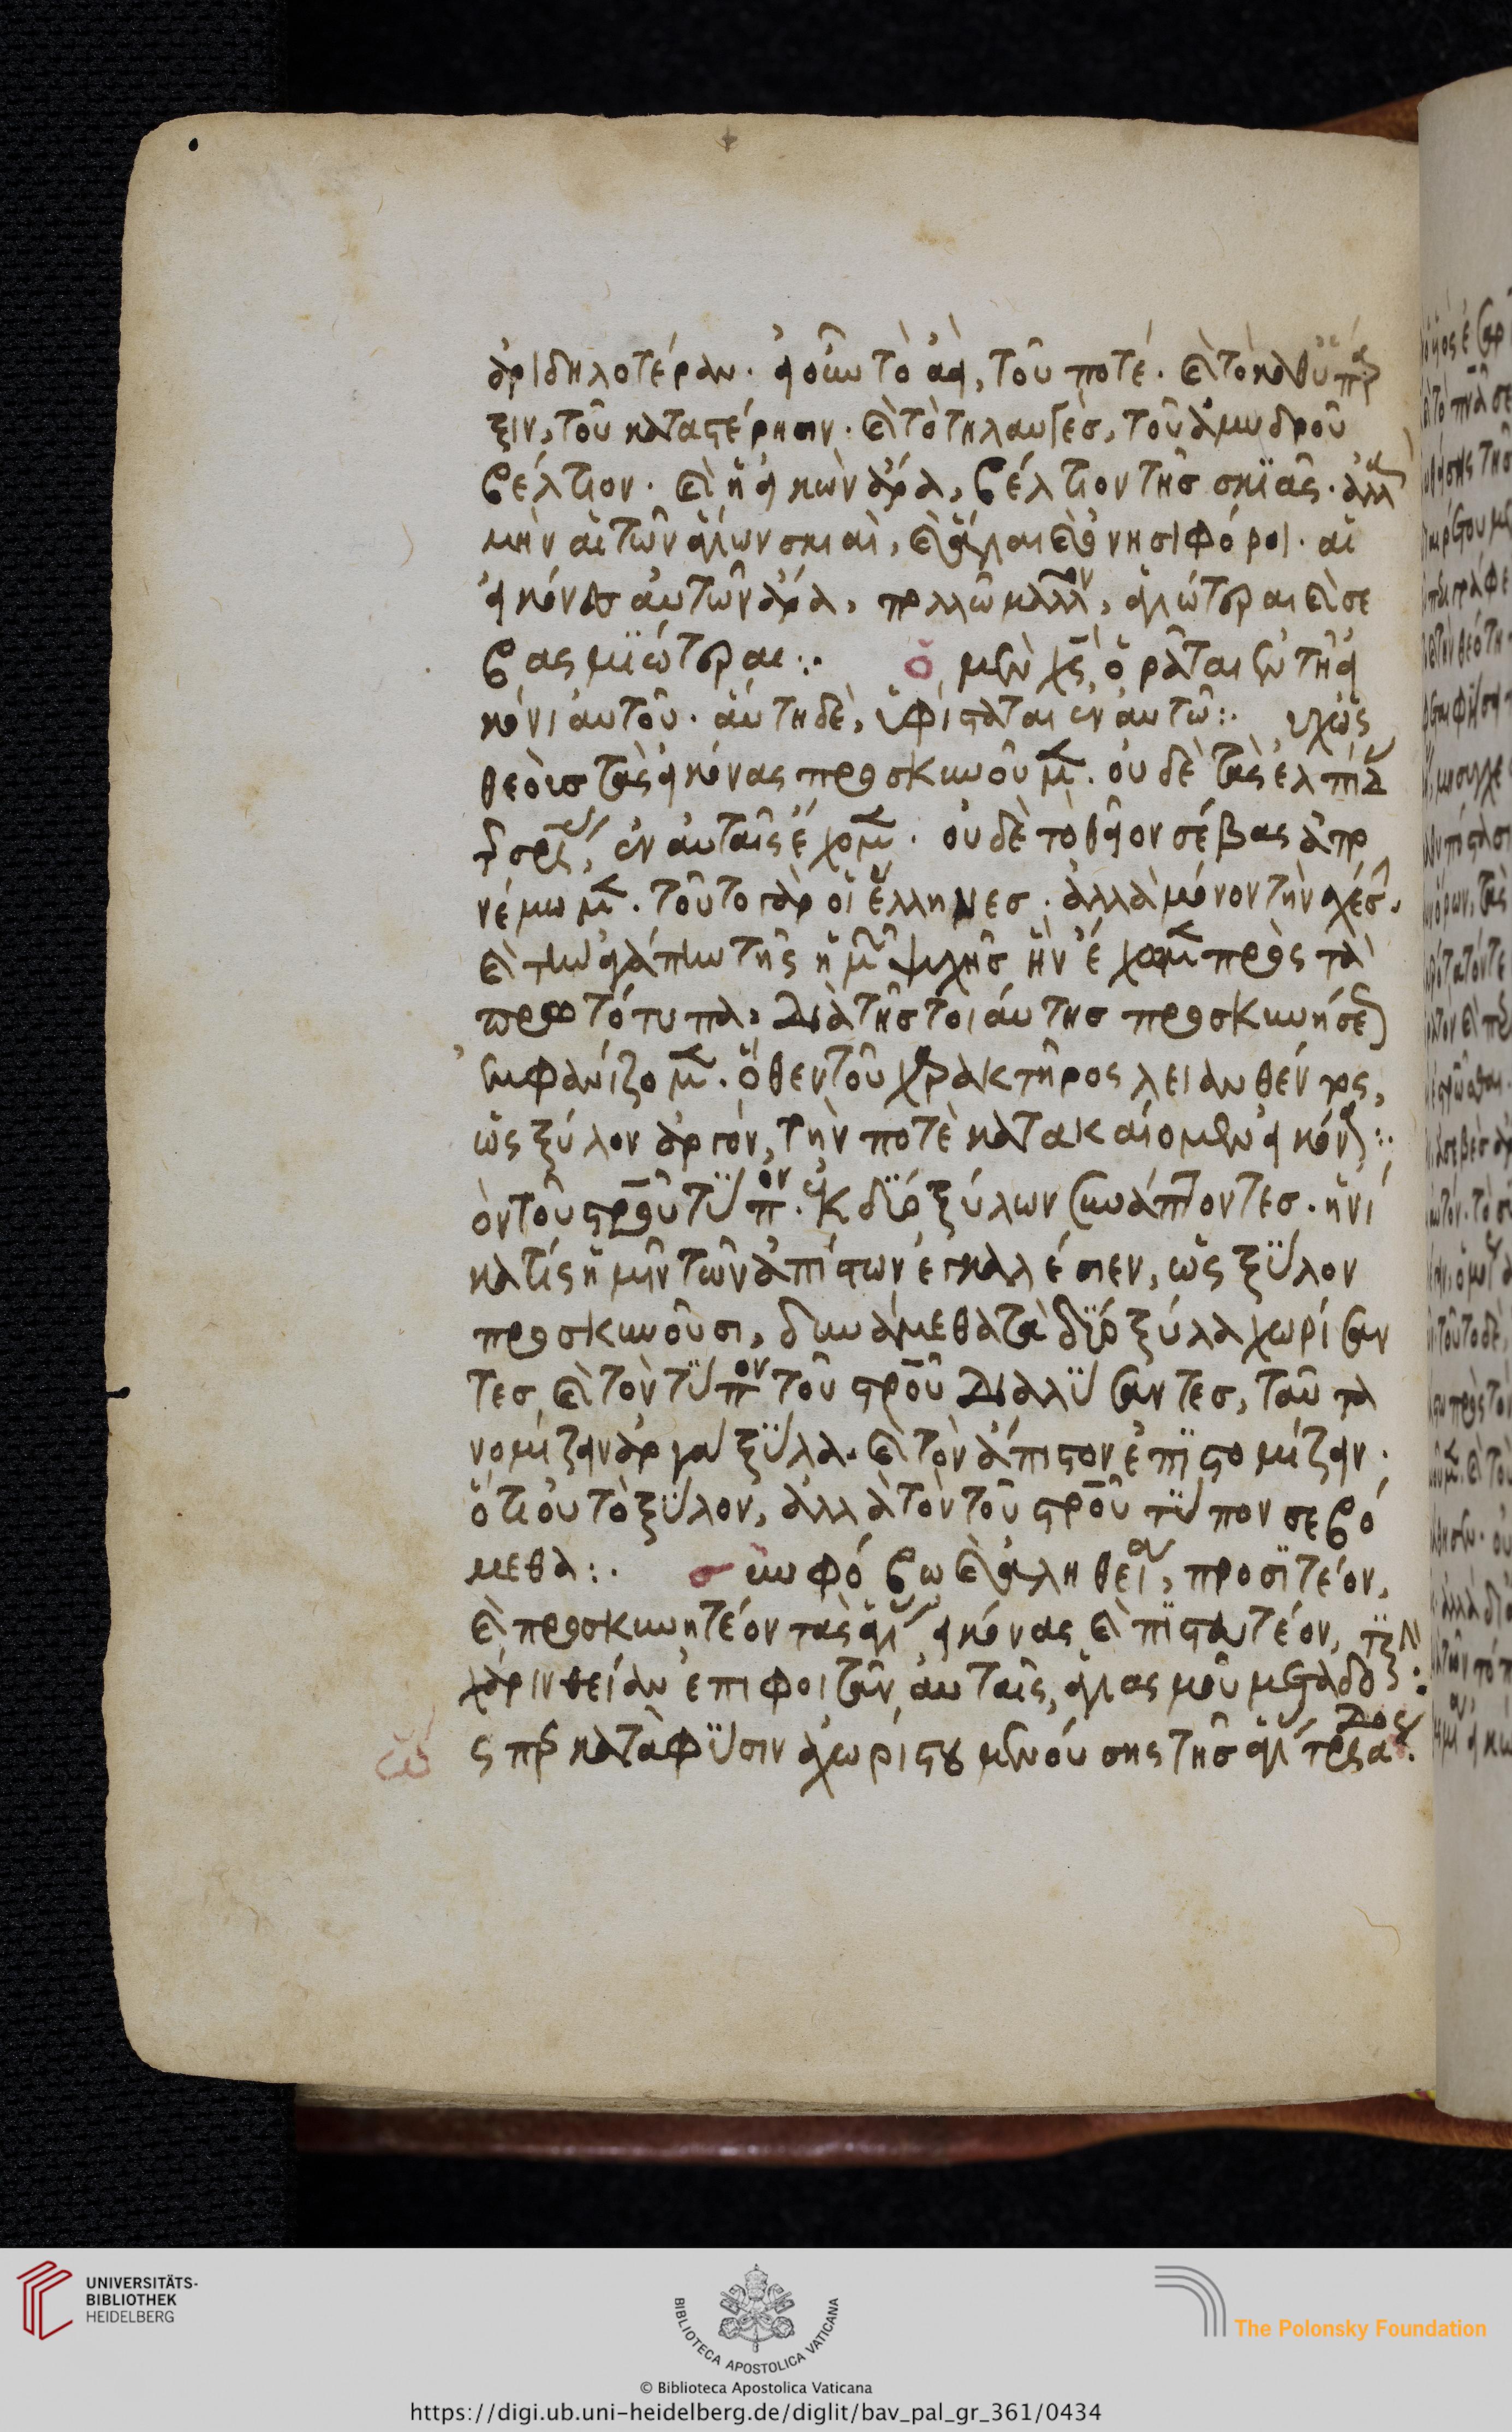 ἀριδηλοτέραν. εἰ οὖν τὸ ἀεὶ, τοῦ ποτέ. καὶ τὸ καθύπαρ
ξιν, τοῦ κατα στέρησιν. καὶ τὸ τηλαυγὲσ, τοῦ ἀμυδροῦ
βέλτιον. καὶ ἡ εἰκὼν ἄρα, βέλτιον τῆσ σκιᾶς. ἀλλὰ
μὴν αἱ τῶν ἁγίων σκιαὶ, καὶ ἅγιαι καὶ ὀνησιφόροι. αἱ
εἰκόνες αὐτῶν ἄρα, πολλῶ μᾶλλον, ἁγιώτεραι καὶ σε
βασμιώτεραι:. ὁ μὲν χς, ὁρᾶται ἐν τῆ εἰ
κόνι αὐτοῦ. αὕτη δὲ, ὑφίσταται ἐν αὐτῶ:. οὐχ ὡς
θεοῖσ τὰς εἰκόνας προσκυνοῦμεν. οὐδὲ τὰς ἐλπίδας
τῆς σρίας, ἐν αὐταῖς ἔχομεν. οὐδὲ τὸ θεῖον σέβας ἀπο
νέμωμεν. τοῦτο γὰρ οἱ ἕλληνεσ. ἀλλὰ μόνον τὴν σχέσιν.
καὶ τὴν ἀγάπην τῆς ἡμῶν ψυχῆσ ἣν ἔχομεν πρὸς τὰ
πρωτότυπα, διὰ τῆσ τοιαύτησ προσκυνήσεως
ἐμφανίζομεν. ὅθεν τοῦ χαρακτῆρος λειανθέντος,
ὡς ξύλον ἀργὸν, τήν ποτὲ κατακαίομεν εἰκόνα:.
ὃν τοῦ σρου τύπον. ἐκ δύο ξύλων συνάπτοντεσ. ἡνί
κα τίς ἡμῖν τῶν ἀπίστων ἐγκαλέσιεν, ὡς ξύλον
προσκυνοῦσι, δυνάμεθα τὰ δύο ξύλα χωρίσαν
τεσ, καὶ τὸν τύπον τοῦ σροῦ διαλύσαντεσ, ταῦτα
νομίζειν ἀργὰ ξύλα. καὶ τὸν ἄπιστον ἐπιστομίζειν.
ὅτι οὐ τὸ ξύλον, ἀλλὰ τὸν τοῦ σροῦ τύπον σεβό
μεθα:. σὺν φόβω καὶ ἀληθεία, προσϊτέον,
καὶ προσκυνητέον τὰς ἁγίας εἰκόνας καὶ πιστευτέον,
χάριν θείαν ἐπιφοιτᾶν αὐταῖς, ἁγιασμοῦ
κατὰ φύσιν ἀχωρίστου μὲν οὔσης τῆσ ἁγίας τριάδος.
UNIVERSITÄTS-
BIBLIOTHEK
HEIDELBERG
BIBLIOTECA APOSTOLICA VATICANA
The Polonsky Foundation
© Biblioteca Apostolica Vaticana
https://digi.ub.uni-heidelberg.de/diglit/bav_pal_gr_361/0434